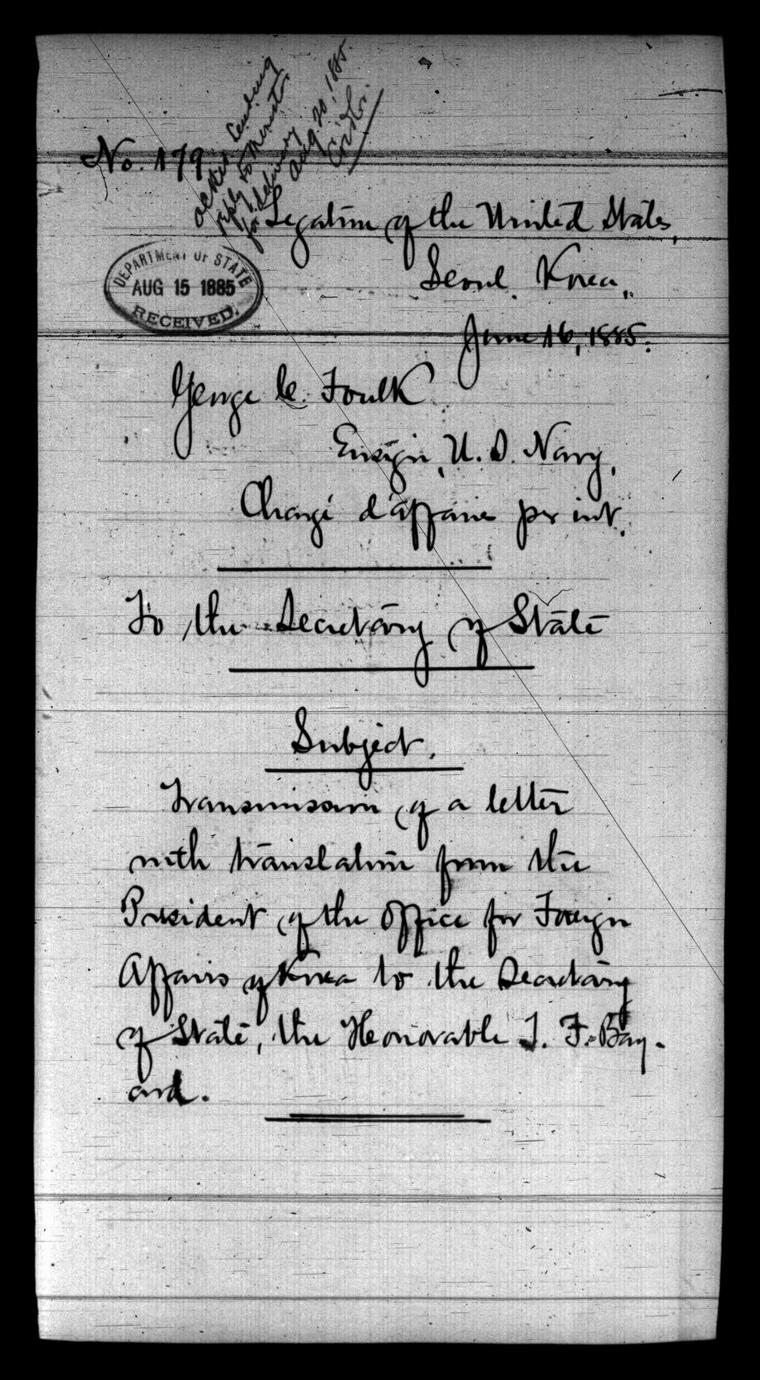 No. 179
Acked sending
reply to Minister
for delivery
Aug 20, 1885.
Legation of the United States,
Seoul, Korea,
DEPARTMENT OF STATE
AUG 15 1885
RECEIVED.
June 16, 1885.
George C. Foulk
Ensign, U.S. Navy,
Chargé d'affaires per int.
To the Secretary of State
Subject.
Transmission of a letter
with translation from the
President of the Office for Foreign
Affairs of Korea to the Secretary
of State, the Honorable T. F. Bay-
ard.